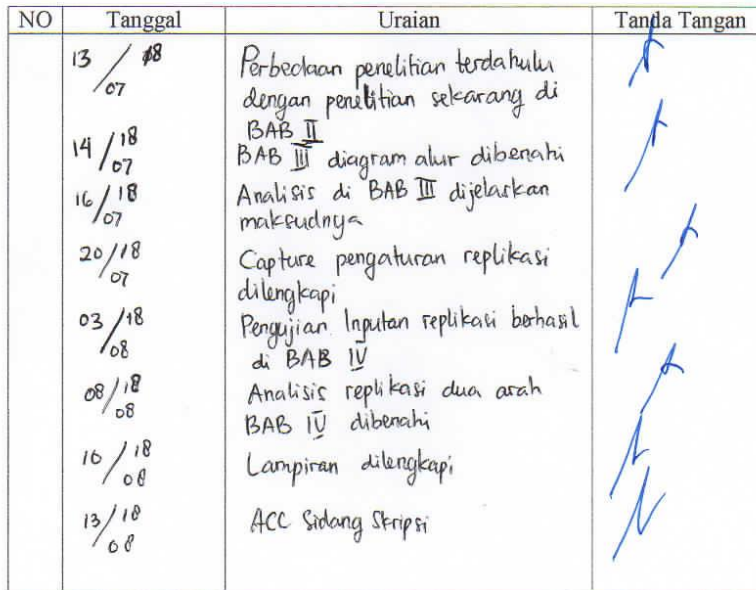 NO Tanggal Uraian Tanda Tangan
13/07 18 Perbedaan penelitian terdahulu
dengan penelitian sekarang di
BAB II
14/07 18 BAB III diagram alur dibenahi
16/07 18 Analisis di BAB III dijelaskan
maksudnya
20/07 18 Capture pengaturan replikasi
dilengkapi
03/08 18 Pengujian Inputan replikasi berhasil
di BAB IV
08/08 18 Analisis replikasi dua arah
BAB IV dibenahi
10/08 18 Lampiran dilengkapi
13/08 18 ACC Sidang Skripsi